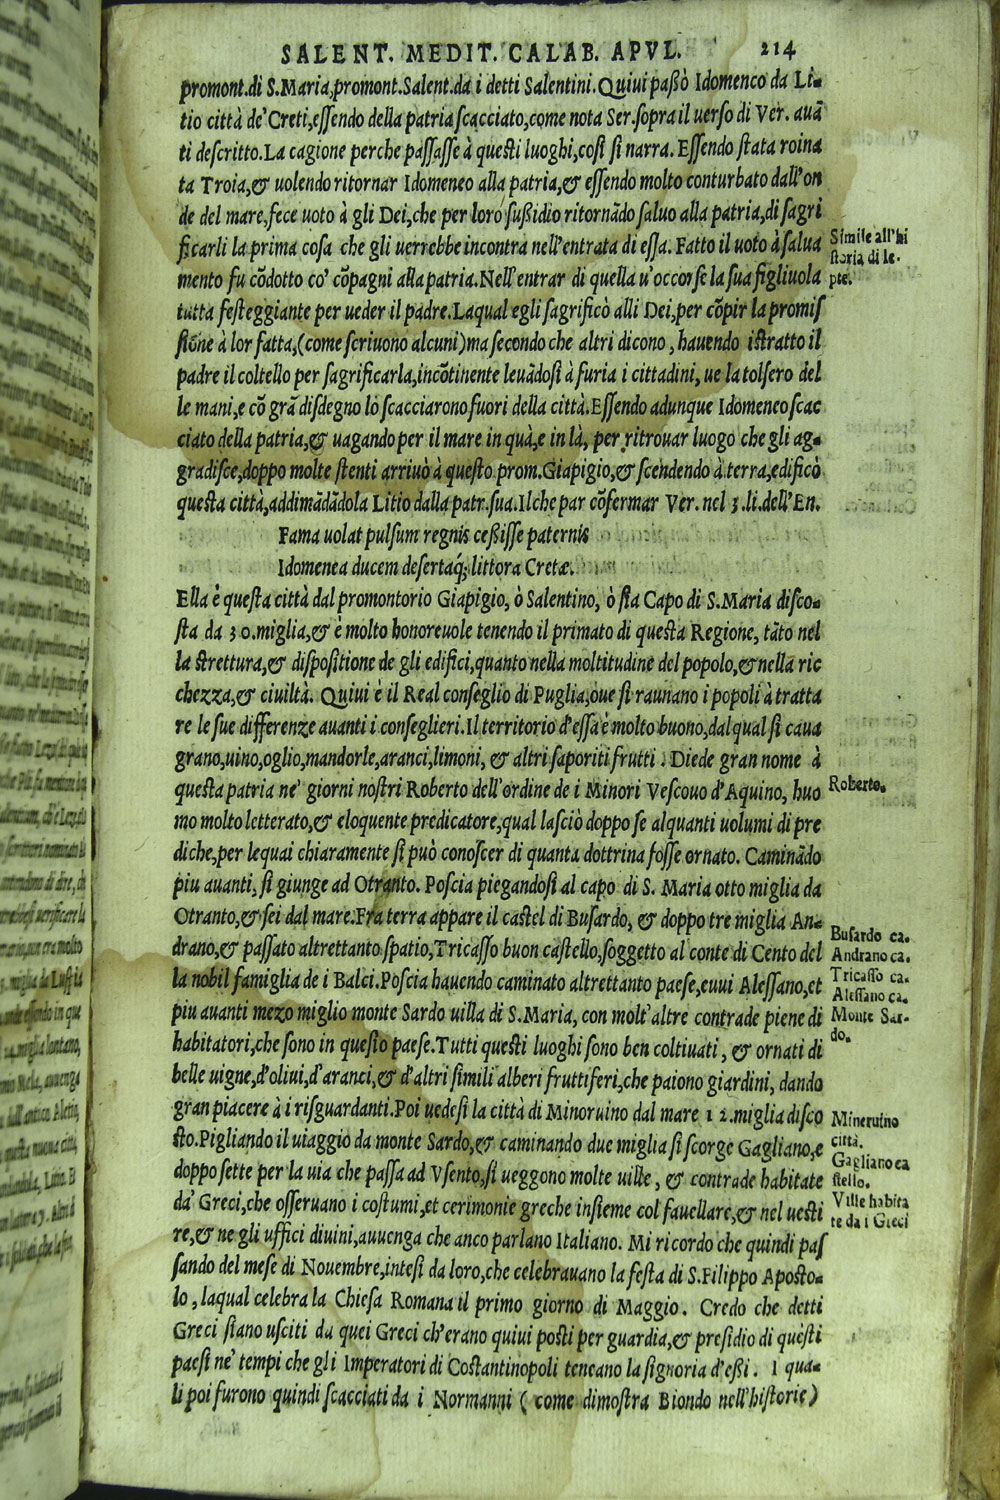 SALENT. MEDIT. CALAB. APVL. 214
promont.di S.Maria,promont.Salent.da i detti Salentini.Quiui paßò Idomenco da Li-
tio città de' Creti,eſſendo della patria ſcacciato,come nota Ser.ſopra il uerſo di Ver. auã
ti deſcritto.La cagione perche paſſaſſe à queſti luoghi,coſi ſi narra. Eſſendo ſtata roina
ta Troia,& uolendo ritornar Idomeneo alla patria,& eſſendo molto conturbato dall'on
de del mare,fece uoto à gli Dei,che per loro ſußidio ritornãdo ſaluo alla patria,di ſagri
ficarli la prima coſa che gli uerrebbe incontra nell'entrata di eſſa. Fatto il uoto à ſalua
mento fu cõdotto co' cõpagni alla patria.Nell'entrar di quella u'occorſe la ſua figliuola
tutta feſteggiante per ueder il padre.Laqual egli ſagrificò alli Dei,per cõpir la promiſ
ſione à lor fatta,(come ſcriuono alcuni)ma ſecondo che altri dicono, hauendo iſtratto il
padre il coltello per ſagrificarla,incõtinente leuãdoſi à furia i cittadini, ue la tolſero del
le mani,e cõ grã diſdegno lo ſcacciarono fuori della città.Eſſendo adunque Idomeneo ſcac
ciato della patria,& uagando per il mare in quà,e in là, per ritrouar luogo che gli ag-
gradiſce,doppo molte ſtenti arriuò à queſto prom.Giapigio,& ſcendendo à terra,edificò
queſta città,addimãdãdola Litio dalla patr.ſua.Ilche par cõfermar Ver. nel 3.li.dell'En.
Fama uolat pulſum regnis ceßiſſe paternis
Idomenea ducem deſertaq́; littora Cretæ.
Ella è queſta città dal promontorio Giapigio, ò Salentino, ò ſia Capo di S.Maria diſco-
ſta da 30.miglia,& è molto honoreuole tenendo il primato di queſta Regione, tãto nel
la ſtrettura,& diſpoſitione de gli edifici,quanto nella moltitudine del popolo,& nella ric
chezza,& ciuiltà. Quiui è il Real conſeglio di Puglia,oue ſi raunano i popoli à tratta
re le ſue differenze auanti i conſeglieri.Il territorio d'eſſa è molto buono,dal qual ſi caua
grano,uino,oglio,mandorle,aranci,limoni, & altri ſaporiti frutti. Diede gran nome à
queſta patria ne' giorni noſtri Roberto dell'ordine de i Minori Veſcouo d'Aquino, huo
mo molto letterato,& eloquente predicatore,qual laſciò doppo ſe alquanti uolumi di pre
diche,per lequai chiaramente ſi può conoſcer di quanta dottrina foſſe ornato. Caminãdo
piu auanti, ſi giunge ad Otranto. Poſcia piegandoſi al capo di S. Maria otto miglia da
Otranto,& ſei dal mare.Fra terra appare il caſtel di Buſardo, & doppo tre miglia An-
drano,& paſſato altrettanto ſpatio,Tricaſſo buon caſtello,ſoggetto al conte di Cento del
la nobil famiglia de i Balci.Poſcia hauendo caminato altrettanto paeſe,euui Aleſſano,et
piu auanti mezo miglio monte Sardo uilla di S.Maria, con molt'altre contrade piene di
habitatori,che ſono in queſto paeſe.Tutti queſti luoghi ſono ben coltiuati, & ornati di
belle uigne,d'oliui,d'aranci,& d'altri ſimili alberi fruttiferi,che paiono giardini, dando
gran piacere à i riſguardanti.Poi uedeſi la città di Minoruino dal mare 12.miglia diſco
ſto.Pigliando il uiaggio da monte Sardo,& caminando due miglia ſi ſcorge Gagliano,e
doppo ſette per la uia che paſſa ad Vſento,ſi ueggono molte uille, & contrade habitate
da' Greci,che oſſeruano i coſtumi,et cerimonie greche inſieme col fauellare,& nel ueſti
re,& ne gli uffici diuini,auuenga che anco parlano Italiano. Mi ricordo che quindi paſ
ſando del meſe di Nouembre,inteſi da loro,che celebrauano la feſta di S.Filippo Apoſto-
lo, laqual celebra la Chieſa Romana il primo giorno di Maggio. Credo che detti
Greci ſiano uſciti da quei Greci ch'erano quiui poſti per guardia,& preſidio di queſti
paeſi ne' tempi che gli Imperatori di Coſtantinopoli teneano la ſignoria d'eßi. I qua-
li poi furono quindi ſcacciati da i Normanni (come dimoſtra Biondo nell'hiſtorie)
Simile all'hi
ſtoria di Ie-
pte.
Roberto.
Buſardo ca.
Andrano ca.
Tricaſſo ca.
Aleſſano ca.
Monte Sar-
do.
Mineruino
città.
Gagliano ca
ſtello.
Ville habita
te da i Greci